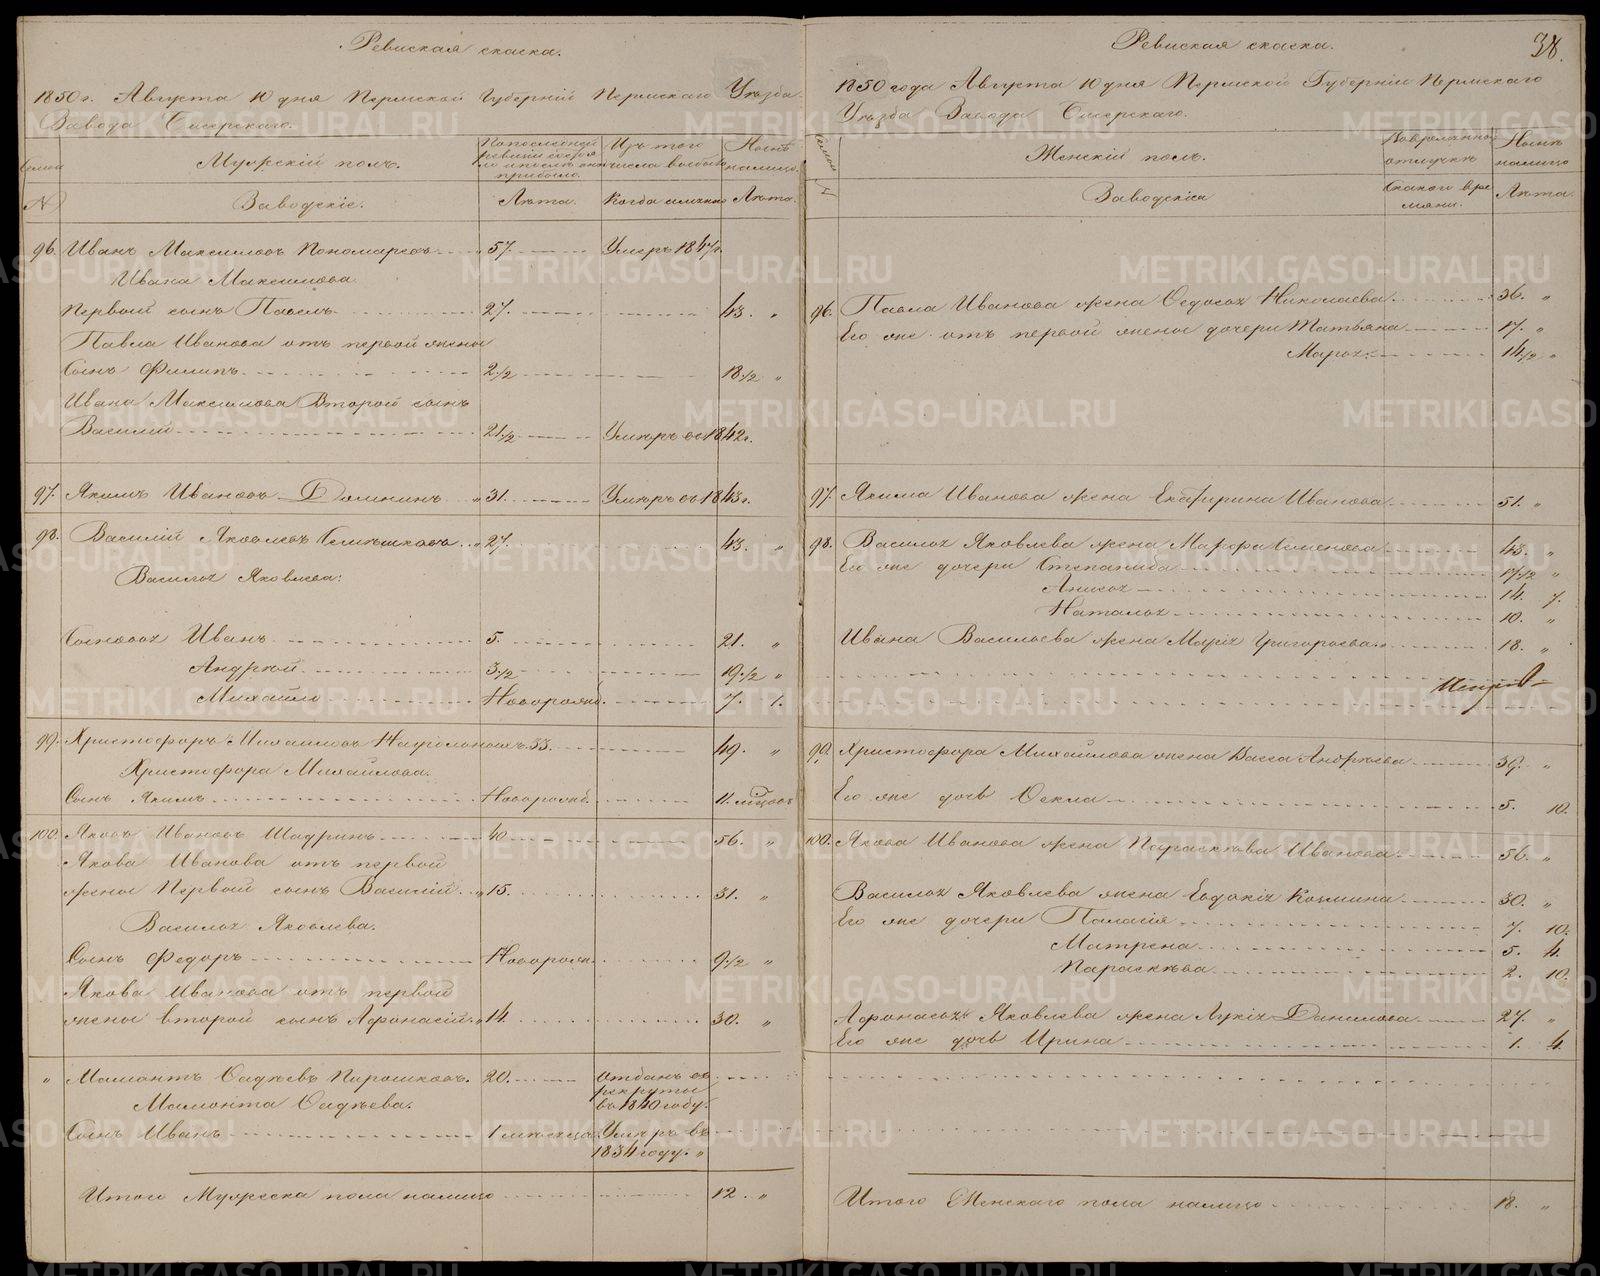 Ревиская скаска.
1850 г. Августа 10 дня Пермской Губерніи Пермскаго Уѣзда
Завода Сысерскаго.
Мужскій полъ.
Изъ того числа выбыло
Нынѣ налицо.
№
Заводскіе.
Лѣта.
Когда именно
Лѣта.
96. Иванъ Максимовъ Пономаревъ 57. Умеръ 1847 г.
Ивана Максимова
первый сынъ Павелъ 27. 43. "
Павла Иванова отъ первой жены
Сынъ Филипъ 2 1/2 18 1/2 "
Ивана Максимова Второй сынъ
Василій 21 1/2 Умеръ въ 1842 г.
97. Якимъ Ивановъ Домнинъ 31. Умеръ въ 1843 г.
98. Василій Яковлевъ 27. 43. "
Василья Яковлева:
Сыновья Иванъ 5. 21. "
Андрей 3 1/2 19 1/2 "
Михайло Новорожд. 7. 1.
99. Христофоръ Михайловъ 33. 49. "
Христофора Михайлова.
Сынъ Якимъ Новорожд. 11. мѣсяцовъ
100. Яковъ Ивановъ Шадринъ 40 56. "
Якова Иванова отъ первой
жены Первый сынъ Василій 15. 31. "
Василья Яковлева.
Сынъ Федоръ Новорож. 9 1/2 "
Якова Иванова отъ первой
жены второй сынъ Афонасій 14. 30. "
" Мамонтъ Фадѣевъ Пирожковъ. 20. отданъ въ рекруты въ 1840 году.
Мамонта Фадѣева.
Сынъ Иванъ 1 мѣсяца Умеръ въ 1834 году. "
Итого Мужеска пола налицо 12. "
Ревиская скаска.
38.
1850 года Августа 10 дня Пермской Губерніи Пермскаго
Уѣзда Завода Сысерскаго.
Женскій полъ.
Во временной отлучкѣ
Нынѣ налицо
Заводскія
Съ какого времяни.
Лѣта.
96. Павла Иванова жена Федосья Николаева 36. "
Его же отъ первой жены дочери Татьяна 17. "
Марья 14 1/2 "
97. Якима Иванова жена Екатирина Иванова 51. "
98. Василья Яковлева жена Марфа Семенова 43. "
Его же дочери Степанида 17 1/2 "
Анисья 14. 7.
Наталья 10. "
Ивана Васильева жена Марія Григорьева 18. "
99. Христофора Михайлова жена Васса Андрѣева 39. "
Его же дочь Фекла 5. 10.
100. Якова Иванова жена Параскѣва Иванова 56. "
Василья Яковлева жена Евдокія Козмина 30. "
Его же дочери Палагія 7. 10.
Матрена 5. 4.
Параскѣва 2. 10.
Афонасья Яковлева жена Лукія Данилова 27. "
Его же дочь Ирина 1. 4.
Итого Женскаго пола налицо 18. "
METRIKI.GASO-URAL.RU